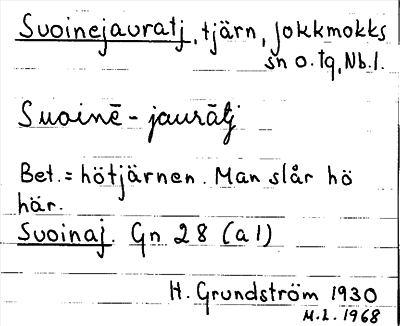 Suoinejauratj, tjärn, Jokkmokks
sn o. tg, Nb.l.
Suoinē-jaurātj
Bet. = hötjärnen. Man slår hö
här.
Suoinaj. Gn 28 (a1)
H. Grundström 1930
M.L. 1968